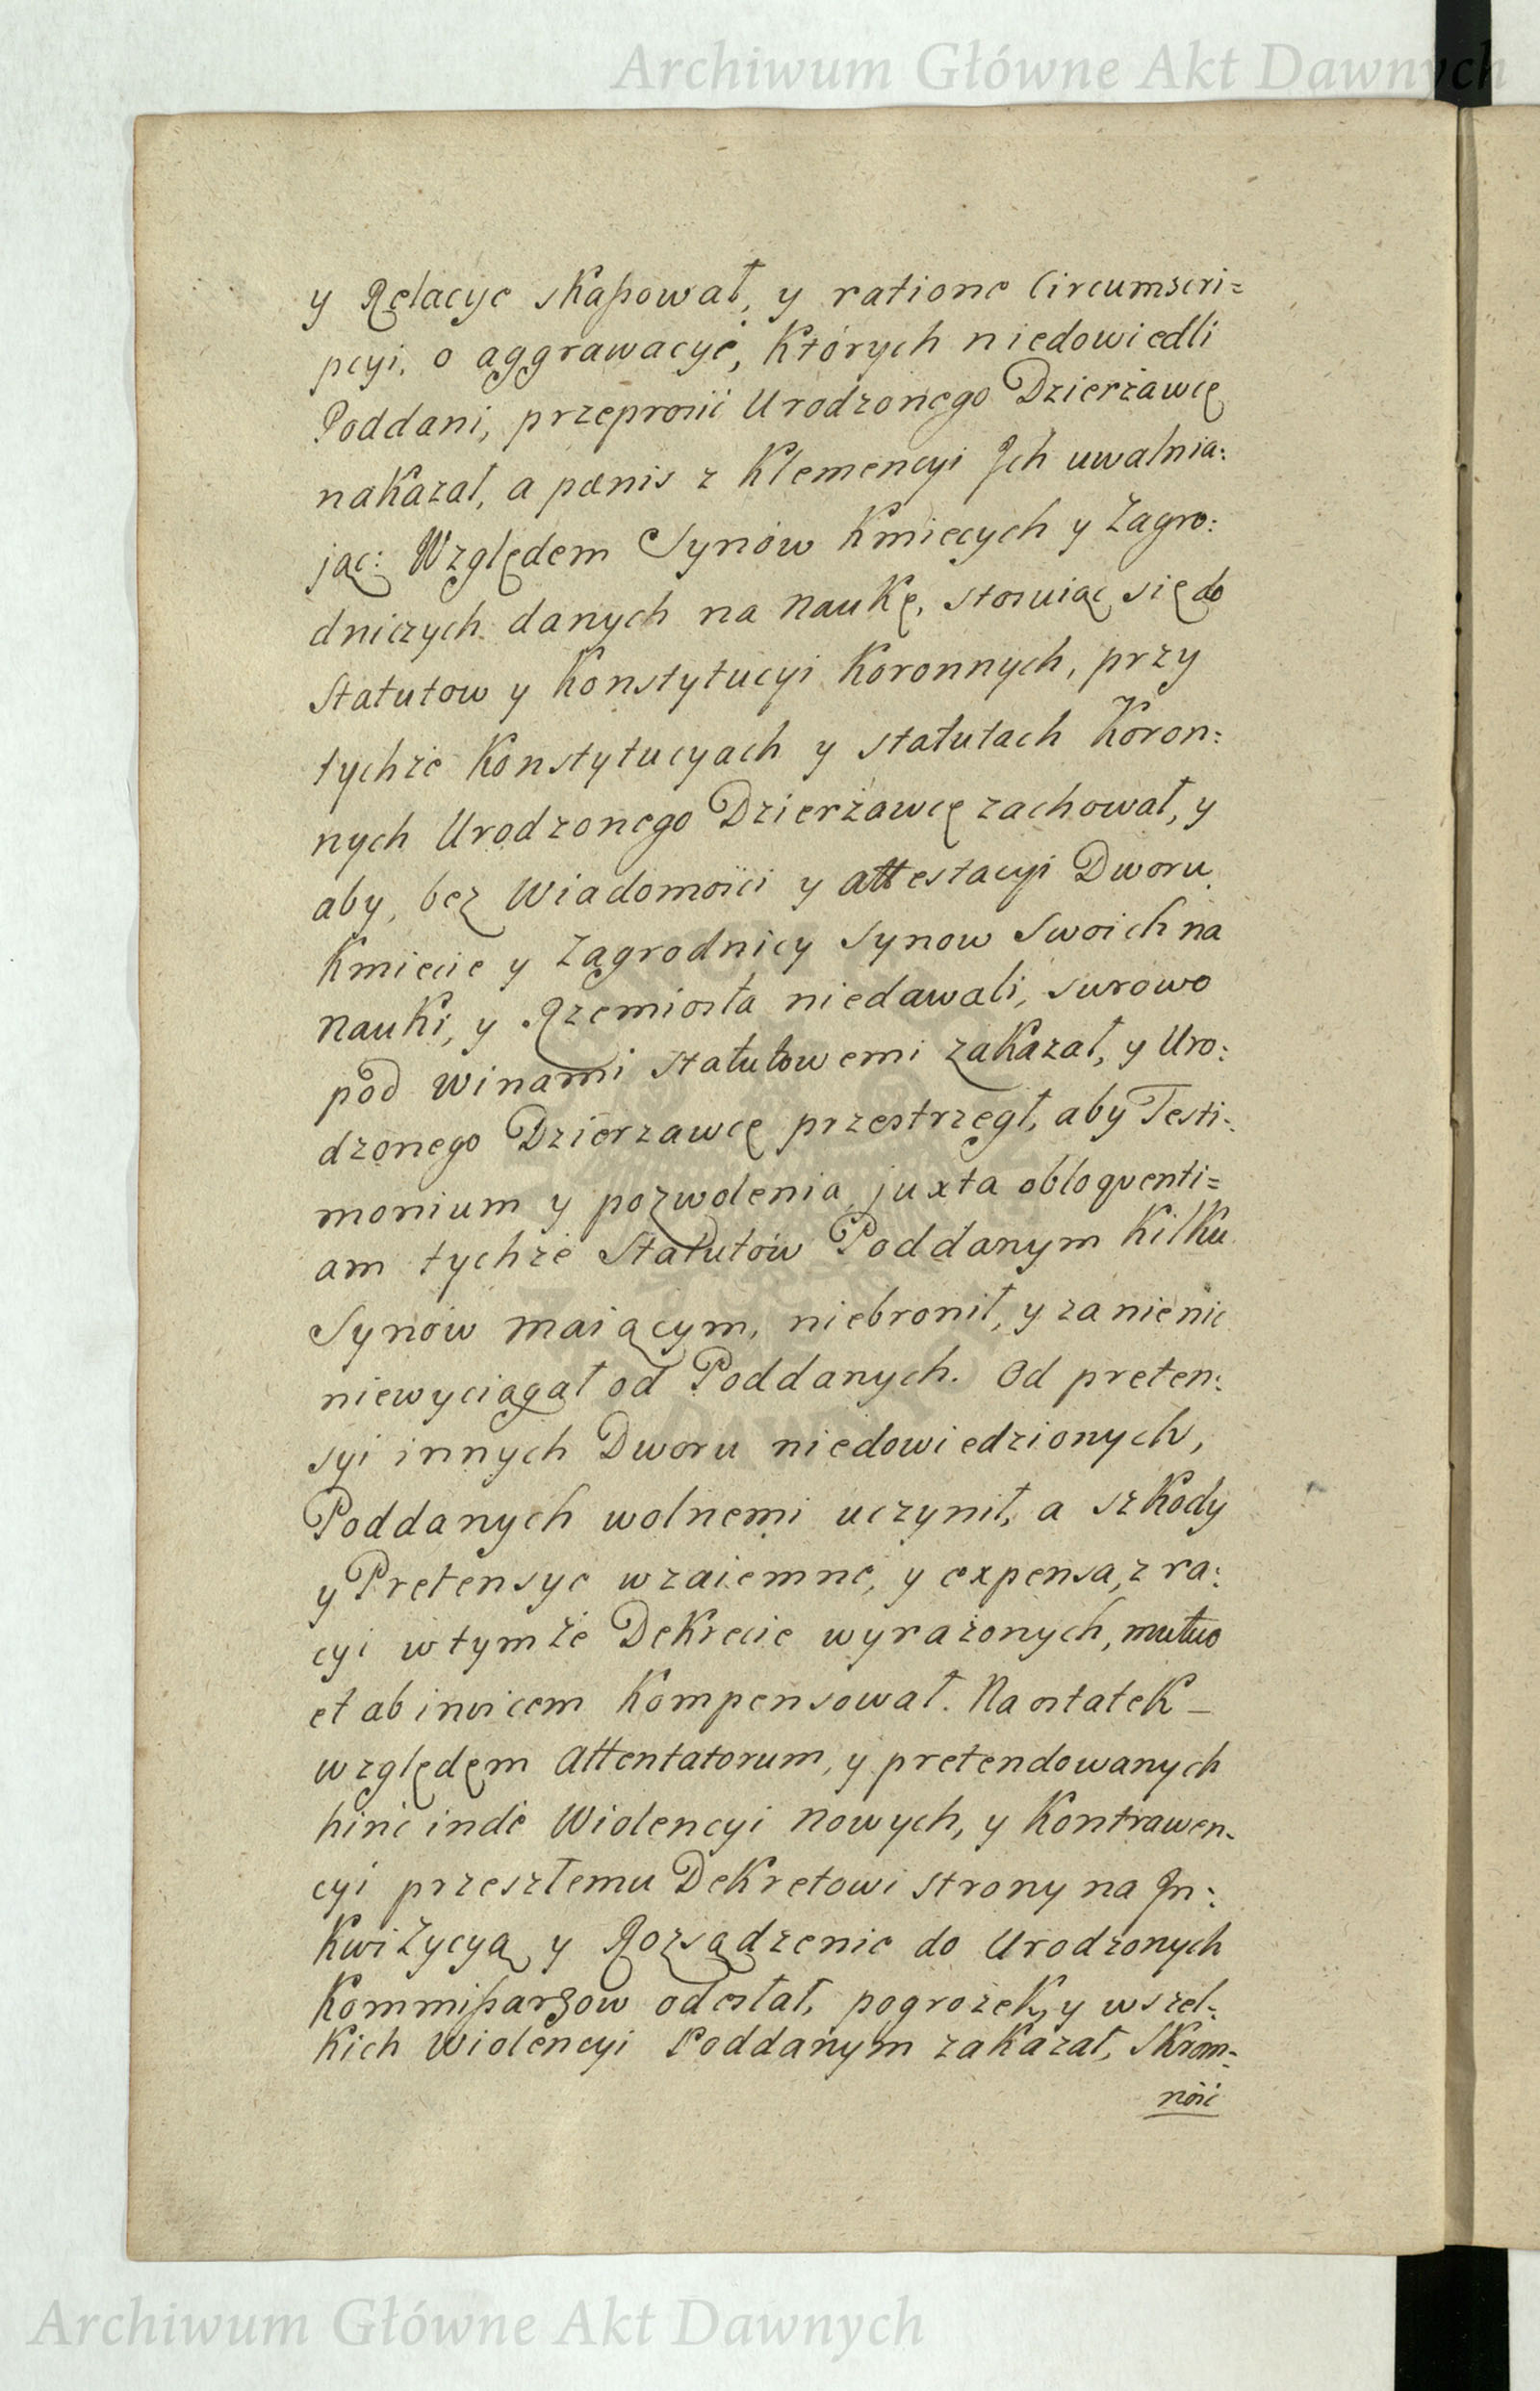 Archiwum Główne Akt Dawnych
y Relacye skaßował, y ratione Circumscri=
pcyi, o aggrawacye, Których niedowiedli
Poddani, przeprosić Urodzonego Dzierżawcę
nakazał, a pœnis z Klemencyi Jch uwalnia:
jąc: Względem Synów Kmiecych y Zagro:
dniczych danych na naukę, stosuiąc się do
Statutow y Konstytucyi Koronnych, przy
tychże Konstytucyach y statutach Koron:
nych Urodzonego Dzierżawcę zachował, y
aby, bez Wiadomości y attestacyi Dworu
Kmiecie y Zagrodnicy Synow Swoich na
nauki, y Rzemiosła niedawali, surowo
pod Winami statutowemi zakazał, y Uro:
dzonego Dzierzawcę przestrzegł, aby Testi:
monium y pozwolenia juxta obloquenti=
am tychże Statutów Poddanym Kilku
Synów maiącym, niebronił, y za nie nic
niewyciągał od Poddanych. Od preten:
syi innych Dworu niedowiedzionych,
Poddanych wolnemi uczynił, a szkody
y Pretensye wzaiemne, y expensa, z ra:
cyi w tymże Dekrecie wyrażonych, mutuo
et ab invicem Kompensował. Na ostatek _
względem Attentatorum, y pretendowanych
hinc inde Wiolencyi nowych, y Kontrawen-
cyi przeszłemu Dekretowi strony na Jn:
Kwizycyą y Rozsądzenie do Urodzonych
Kommißarzow odesłał, pogrożek, y wszel:
kich Wiolencyi Poddanym zakazał, Skrom:
ność
Archiwum Główne Akt Dawnych